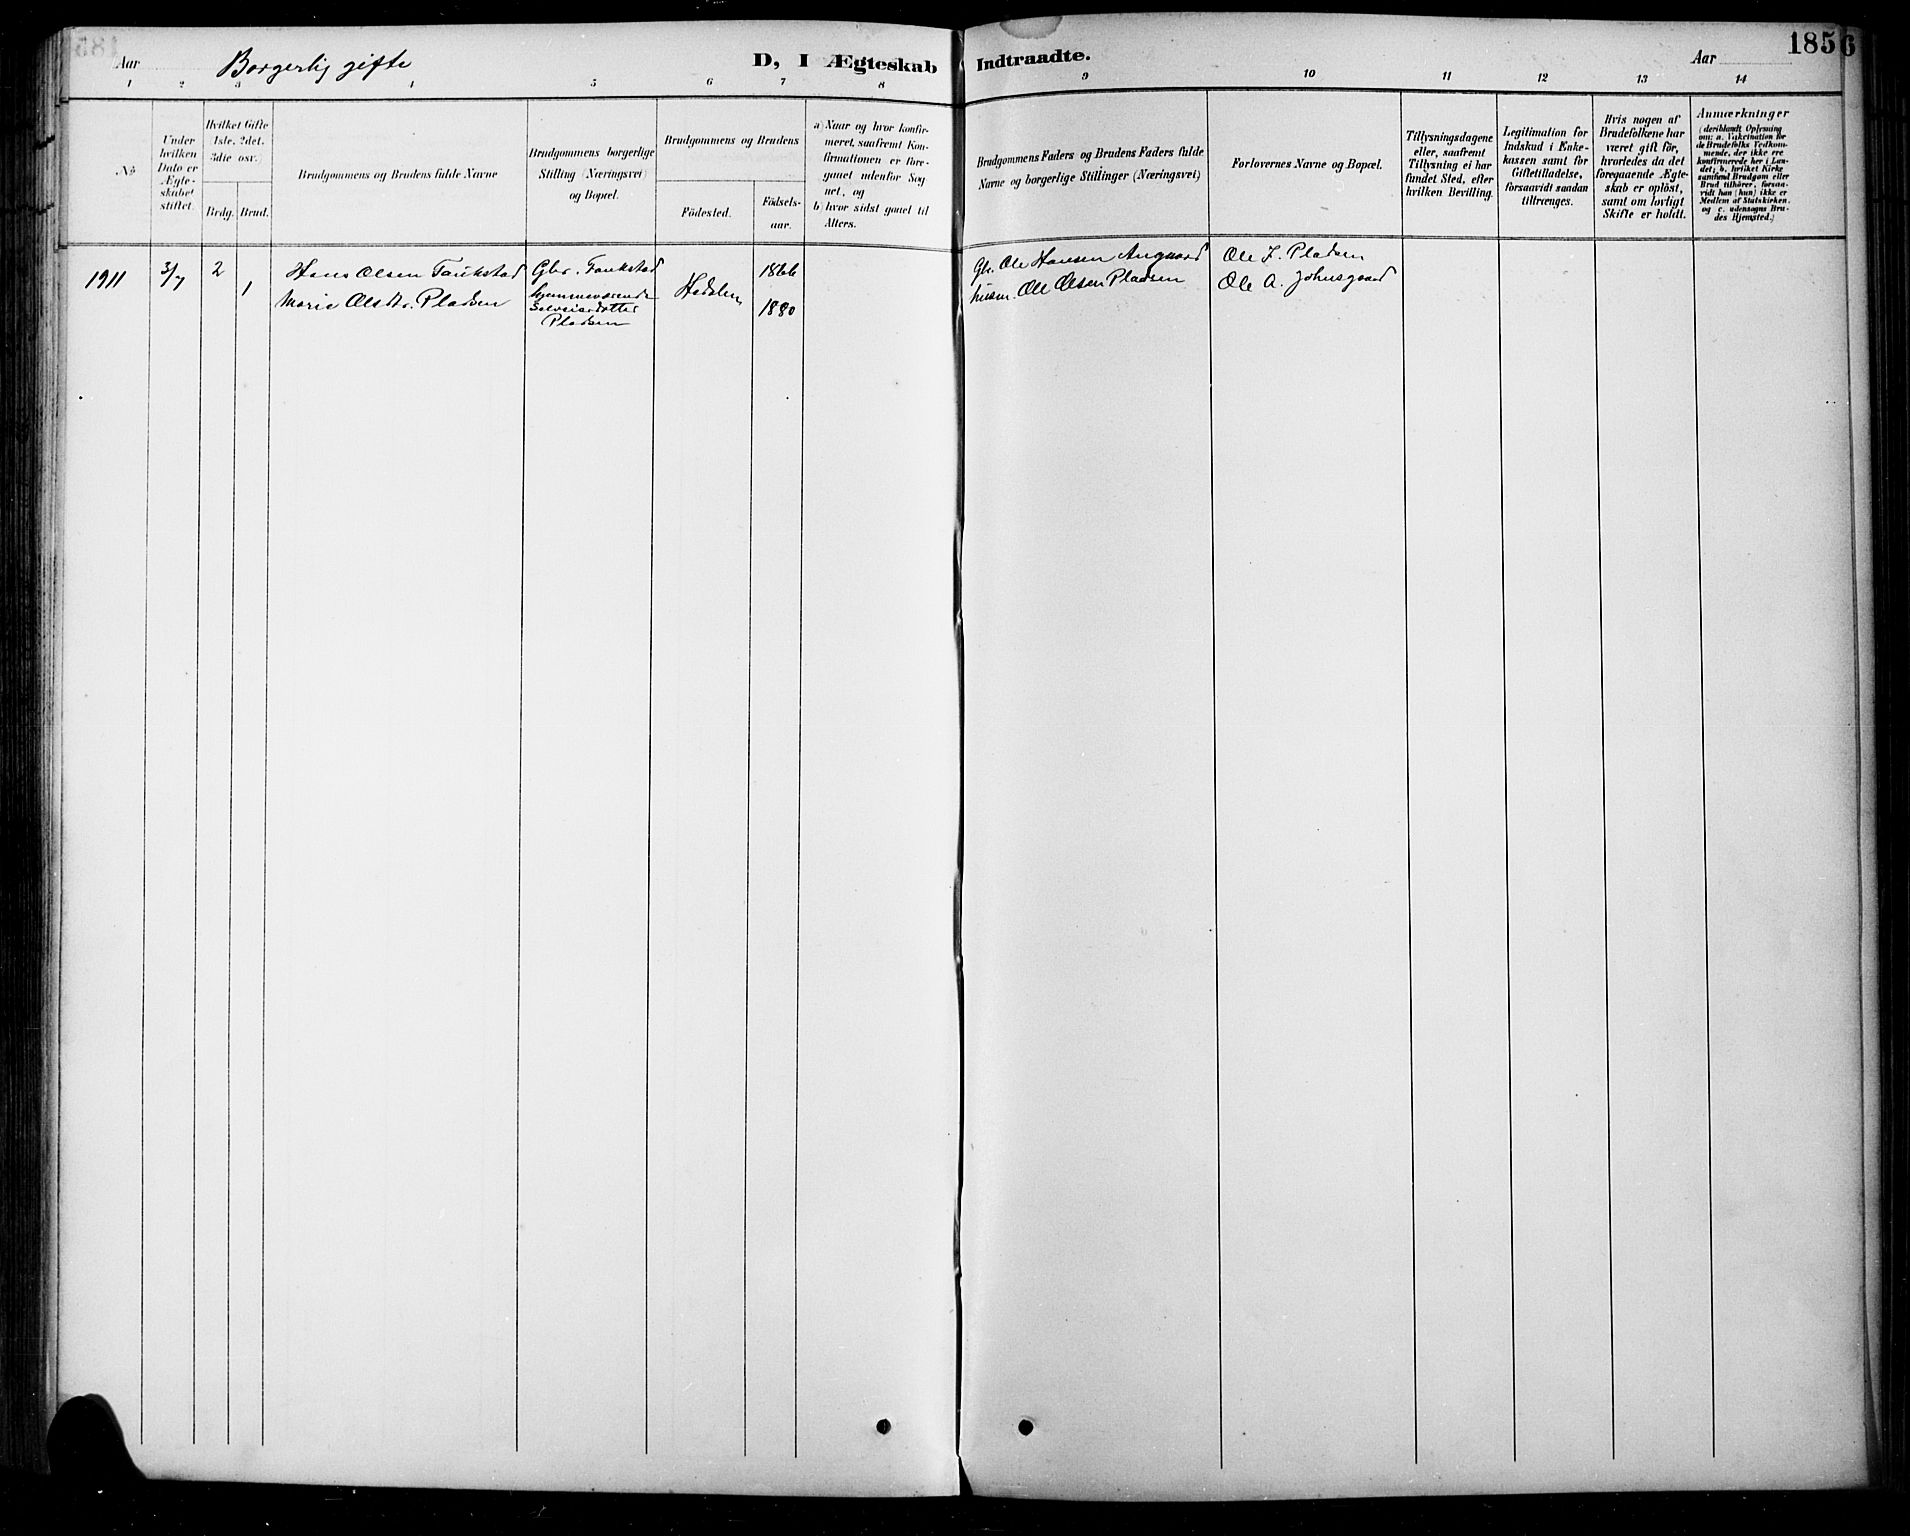 Aar Borgerlig gifte D, I Ægteskab Indtraadte. Aar 185
1 2 3 4 5 6 7 8 9 10 11 12 13 14
No
Under
hvilken
Dato er
Ægte-
skabet
stiftet.
Hvilket Gifte
1ste, 2det,
3die osv.)
Brdg. Brud.
Brudgommens og Brudens fulde Navne
Brudgommens borgerlige
Stilling (Næringsvei)
og Bopæl.
Brudgommens og Brudens
Födested.
Födsels-
aar.
a) Naar og hvor konfir-
meret, saafremt Kon-
firmationen er fore-
gaaet udenfor Sog
net, og
b) hvor sidst gaaet til
Alters.
Brudgommens Faders og Brudens Faders fulde
Navne og borgerlige Stillinger (Næringsvei)
Forlovernes Navne og Bopæl.
Tillysningsdagene
eller, saafremt
Tillysning ei har
fundet Sted, efter
hvilken Bevilling.
Legitimation for
Indskud i Enke-
kassen samt for
Giftetilladelse,
forsaavidt saadan
tiltrænges.
Hvis nogen af
Brudefolkene har
været gift för,
hvorledes da det
foregaaende Ægte-
skab er oplöst,
samt om lovligt
Skifte er holdt.
Anmærkninger
(deriblandt Oplysning
om: a. Vakcination for
de Brudefolks Vedkom-
mende, der ikke ere
konfirmerede her i Lan-
det; b. hvilket Kirke
samfund Brudgom eller
Brud tilhörer, forsaa-
vidt han (hun) ikke er
Medlem af Statskirken,
og c. udensogns Bru-
des Hjemsted.)
1911 3/7 2 Hans Olsen Faukstad Gbr. Faukstad Hedalen 1866 Gbr. Ole Hansen Augaard Ole J. Pladsen
1 Marie Olsdtr. Pladsen hjemmeværende
Pladsen 1880 husm. Ole Olsen Pladsen Ole A. Johnsgaard